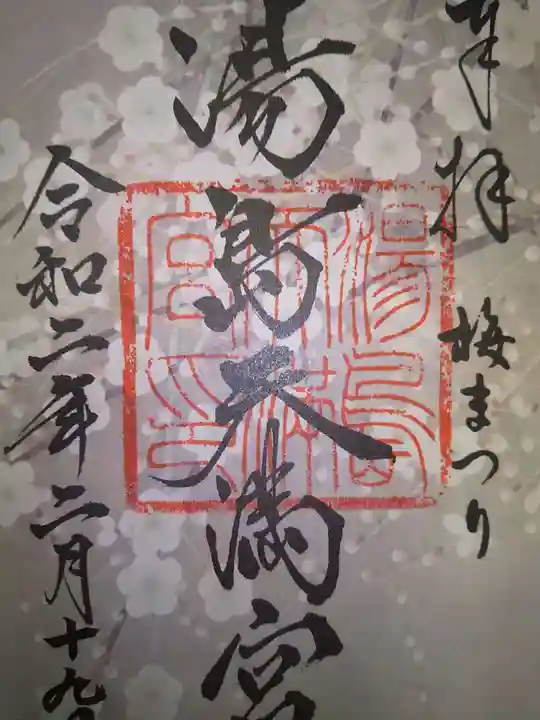 奉拝 梅まつり
湯島天満宮
令和二年二月十九日
湯島
天満
宮印